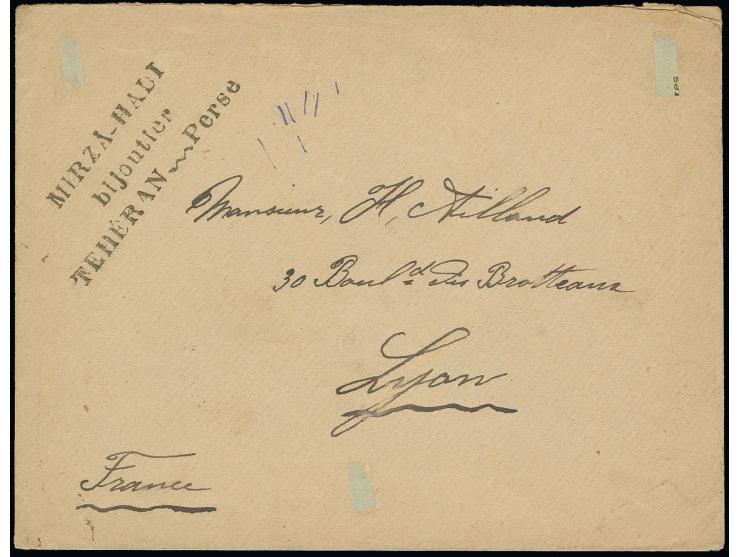 MIRZA-HADI
bijoutier
TEHÉRAN Perse
Monsieur, H, Ailloud
30 Boul.d des Brotteaux
Lyon
France